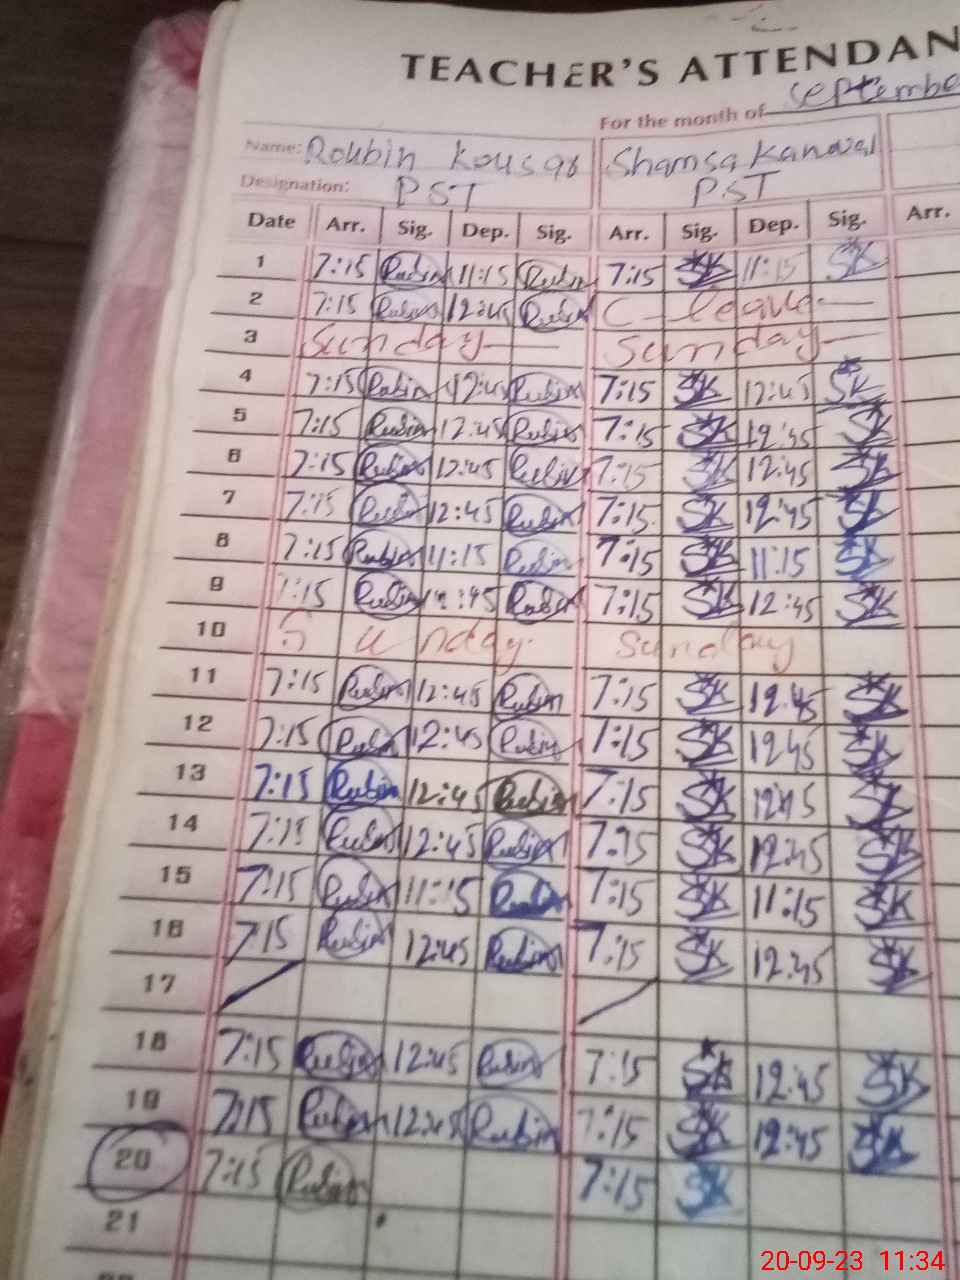 TEACHER'S ATTENDAN
For the month of September
Name: Roubin Kousar Shamsa Kanwal
Designation: PST PST
Date Arr. Sig. Dep. Sig. Arr. Sig. Dep. Sig. Arr.
1 7:15 Rubin 11:15 Rubin 7:15 SK 11:15 SK
2 7:15 Rubin 12:45 Rubin C-leave
3 Sunday Sunday
4 7:15 Rubin 12:45 Rubin 7:15 SK 12:45 SK
5 7:15 Rubin 12:45 Rubin 7:15 SK 12:45 SK
6 7:15 Rubin 12:45 Rubin 7:15 SK 12:45 SK
7 7:15 Rubin 12:45 Rubin 7:15 SK 12:45 SK
8 7:15 Rubin 11:15 Rubin 7:15 SK 11:15 SK
9 7:15 Rubin 12:45 Rubin 7:15 SK 12:45 SK
10 Sunday Sunday
11 7:15 Rubin 12:45 Rubin 7:15 SK 12:45 SK
12 7:15 Rubin 12:45 Rubin 7:15 SK 12:45 SK
13 7:15 Rubin 12:45 Rubin 7:15 SK 12:45 SK
14 7:15 Rubin 12:45 Rubin 7:15 SK 12:45 SK
15 7:15 Rubin 11:15 Rubin 7:15 SK 11:15 SK
16 7:15 Rubin 12:45 Rubin 7:15 SK 12:45 SK
17
18 7:15 Rubin 12:45 Rubin 7:15 SK 12:45 SK
19 7:15 Rubin 12:45 Rubin 7:15 SK 12:45 SK
20 7:15 Rubin 7:15 SK
21
20-09-23 11:34